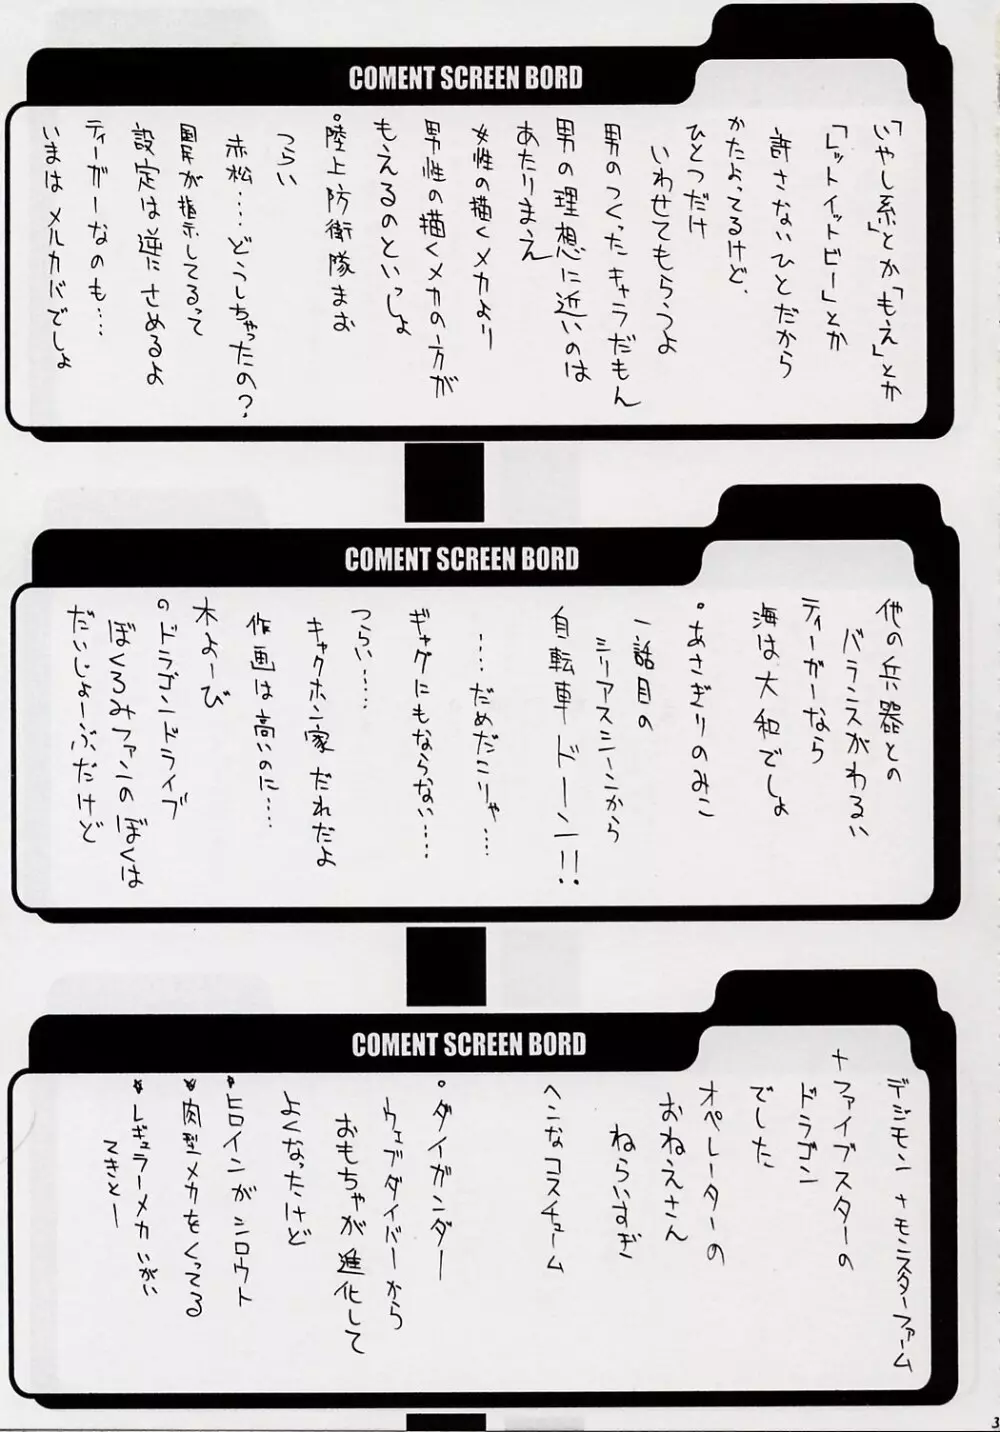 COMENT SCREEN BORD
「いやし系」とか「もえ」とか
「レットイットビー」とか
許さないひとだから
かたよってるけど、
ひとつだけ
いわせてもらうよ
男のつくったキャラだもん
男の理想に近いのは
あたりまえ
女性の描くメカより
男性の描くメカの方が
もえるのといっしょ
。陸上防衛隊まお
つらい
赤松‥‥どうしちゃったの?
国が指示してるって
設定は逆にさめるよ
ティーガーなのも‥‥
いまはメルカバでしょ
COMENT SCREEN BORD
他の兵器との
バランスがわるい
ティーガーなら
海は大和でしょ
。あさぎりのみこ
一話目の
シリアスシーンから
自転車ドーン!!
‥‥だめだこりゃ‥‥
ギャグにもならない‥‥
つらい‥‥
キャクホン家だれだよ
作画は高いのに‥‥
木よーび
。ドラゴンドライブ
ぼくろみファンのぼくは
だいじょーぶだけど
COMENT SCREEN BORD
デジモン+モンスターファーム
+ファイブスターの
ドラゴン
でした
オペレーターの
おねえさん
ねらいすぎ
ヘンなコスチューム
。ダイガンダー
ウェブダイバーから
おもちゃが進化して
よくなったけど
ヒロインがシロウト
肉型メカをくってる
レギュラーメカいがい
てきとー
3